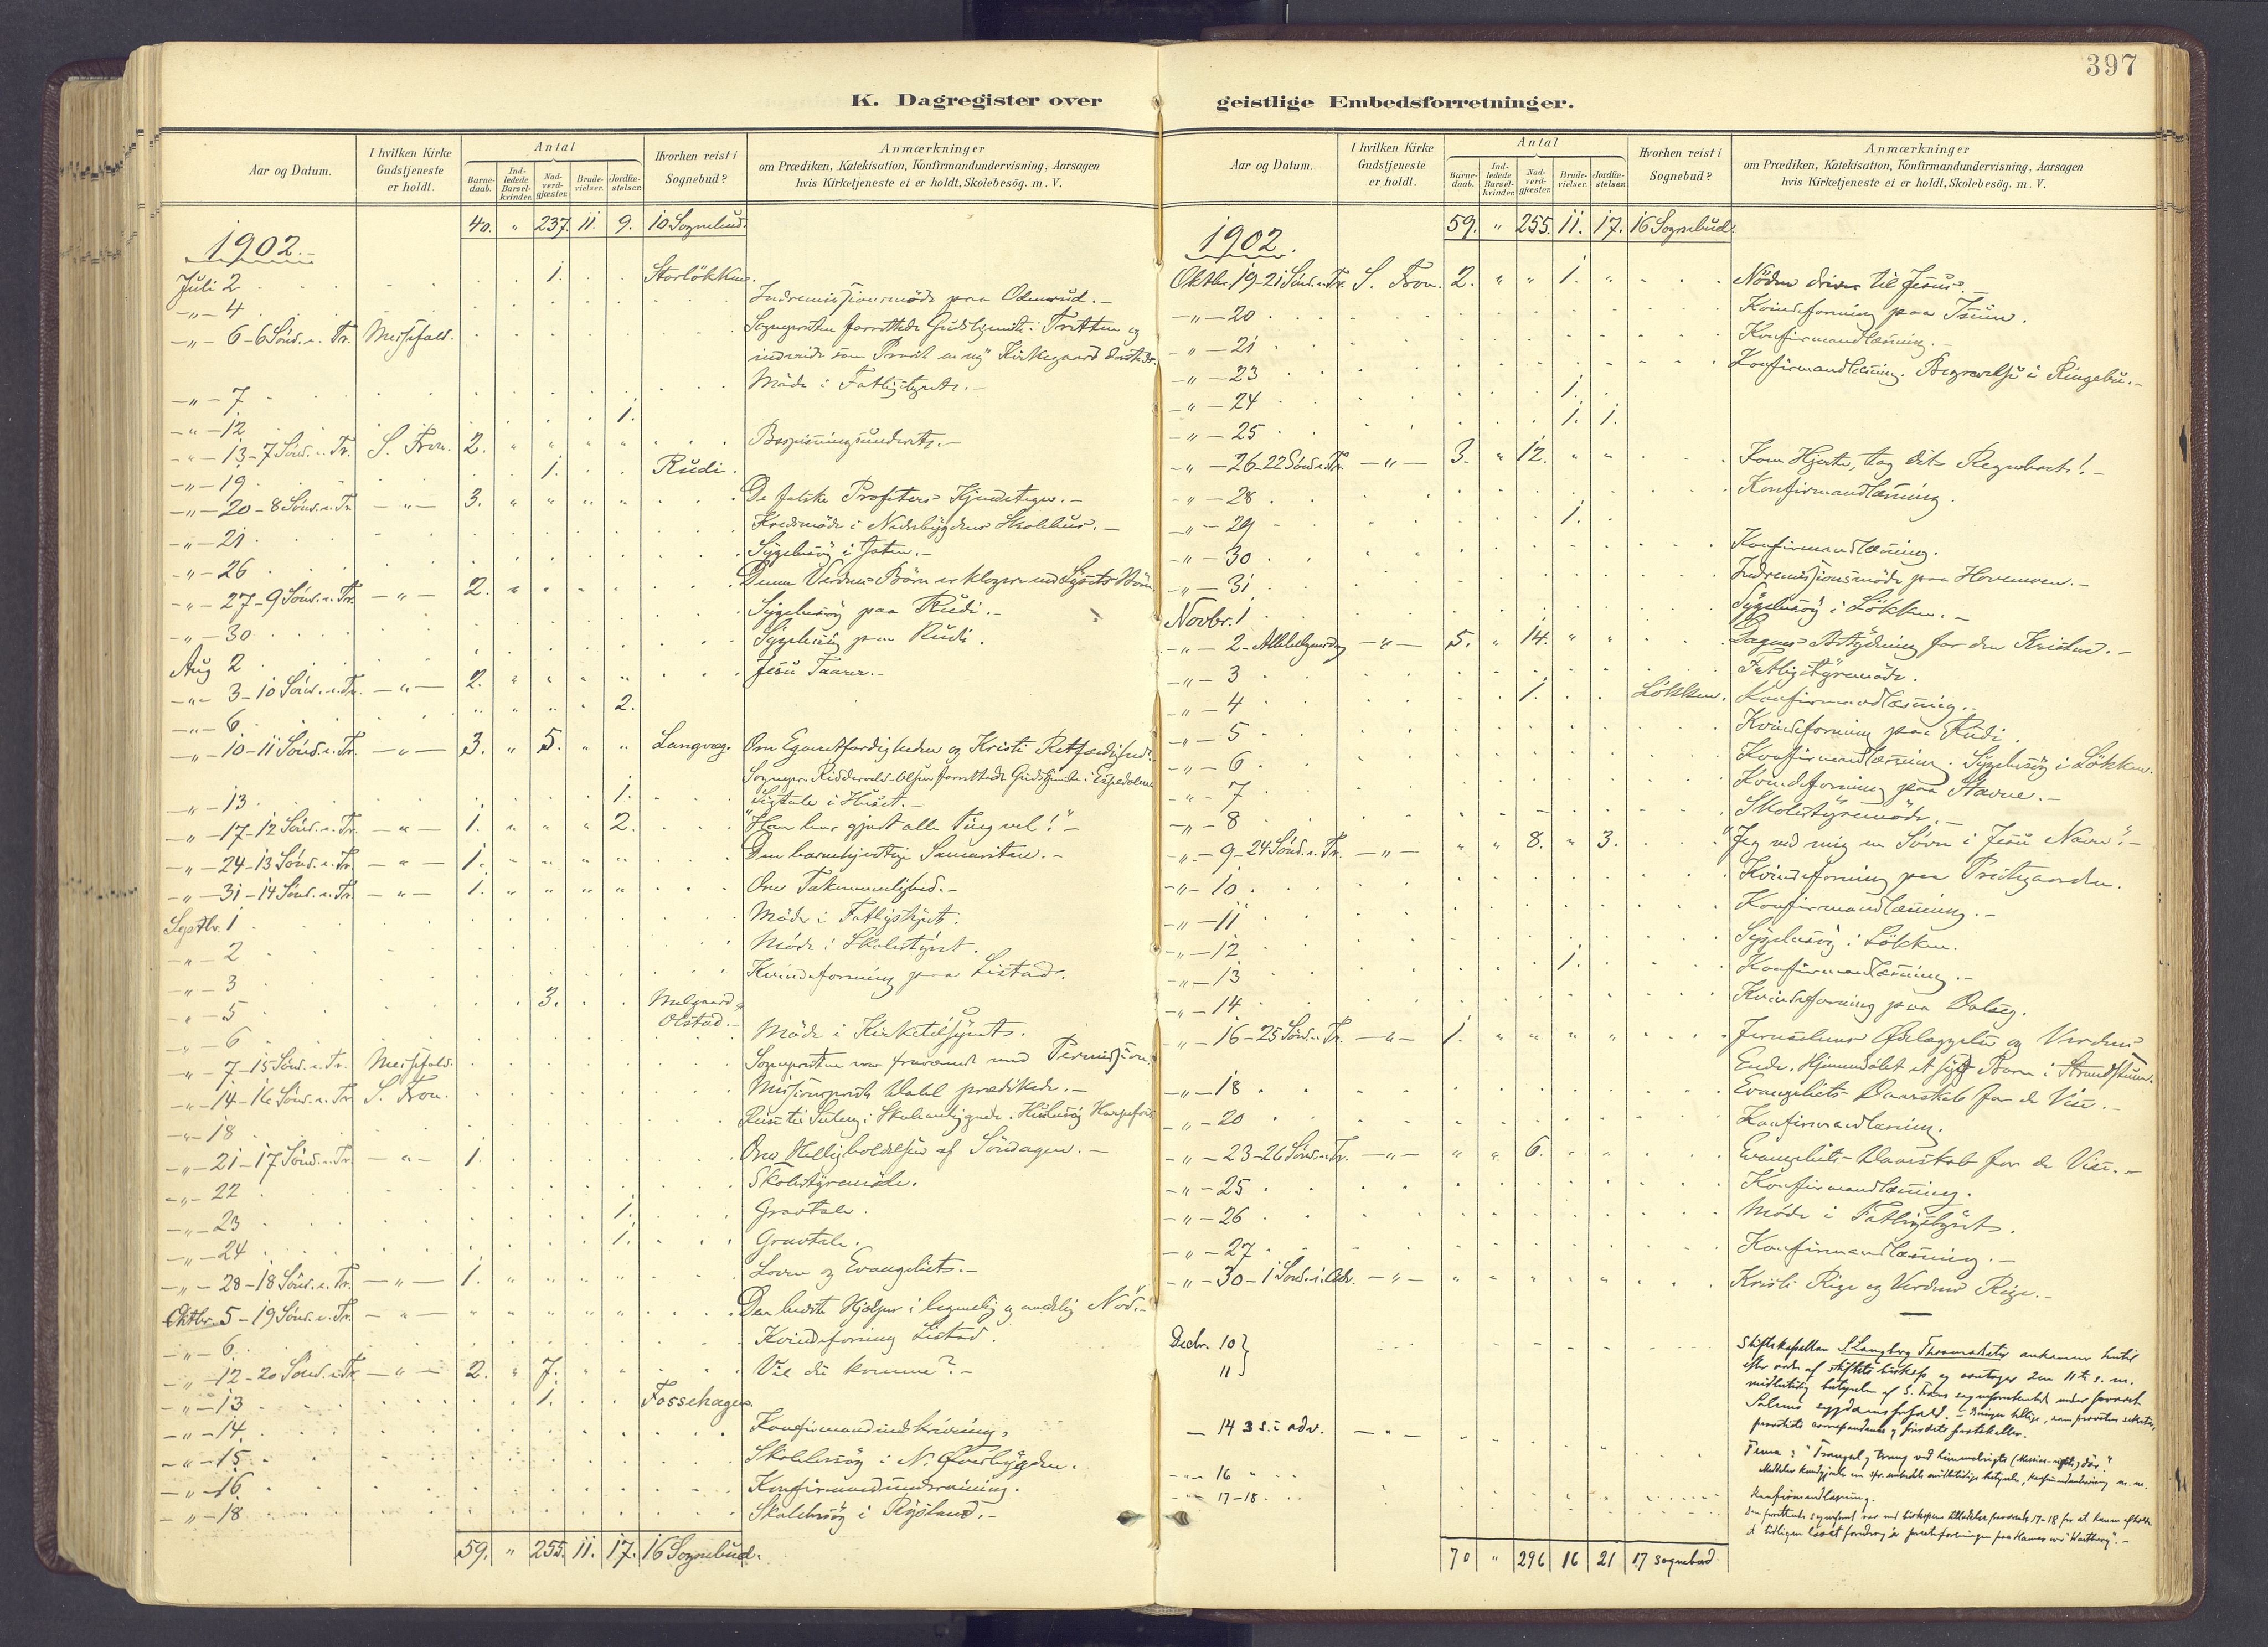 397
K. Dagregister over
geistlige Embedsforretninger.
Aar og Datum.
I hvilken Kirke Gudstjeneste er holdt.
Antal
Barnedaab.
Indledede Barselkvinder.
Nadverdgjæster.
Brudevielser.
Jordfæstelser.
Hvorhen reist i Sognebud?
Anmærkninger
om Prædiken, Katekisation, Konfirmandundervisning, Aarsagen
hvis Kirketjeneste ei er holdt, Skolebesög. m. V.
40. " 237. 11. 9. 10 Sognebud.
1902.
Juli 2 1. Storlökken.
-"- 4 Indremissionsmöde paa Odenrud.-
-"- 6 - 6 Sönd. e. Tr. Messefald. Sognepresten forrettede Gudstjeneste i Tretten og
indviede som Provst en ny Kirkegaard dersteds.
-"- 7 Möde i Fattigstyret.-
-"- 12 1.
-"- 13 - 7 Sönd. e. Tr. S. Fron. 2. " " " " Bespisningsunderet.-
-"- 19 1. Rudi.
-"- 20 - 8 Sönd. e. Tr. -"- 3. " " " " De falske Profeters Kjendetegn.-
-"- 21 Kredsmöde i Nederbygdens Skolehus.-
-"- 26 Sygebesög i
-"- 27 - 9 Sönd. e. Tr. -"- 2. " " " " Denne Verdens Börn er klogere end Lysets Börn
-"- 30 Sygebesög paa Rudi.-
Aug 2 Sygebesög paa Rudi.
-"- 3 - 10 Sönd. e. Tr. -"- 2. " " " " Jesu Taarer.-
-"- 6 " " " " 2.
-"- 10 - 11 Sönd. e. Tr. -"- 3. " 5. " " Langvag. Om Egenretfærdigheden og Kristi Retfærdighed.
Sognepr. Ridderwold-Olsen forrettede Gudstjeneste i Espedalen
-"- 13 1. Ligtale i Huset.-
-"- 17 - 12 Sönd. e. Tr. -"- 1. " " " 2. "Han har gjort alle Ting vel!"-
-"- 24 - 13 Sönd. e. Tr. -"- 1. " " " " Den barmhjertige Samaritan.-
-"- 31 - 14 Sönd. e. Tr. -"- 1. " " " " Om Taknemmelighed.-
Septbr. 1 Möde i Fattigstyret.
-"- 2 Möde i Skolestyret.
-"- 3 Kvindeforening paa Listad.
-"- 5 3. Melgaard
Olstad.-
-"- 6 Möde i Kirketilsynet.
-"- 7 - 15 Sönd. e. Tr. Messefald. Sognepresten var fraværende med Permission.
-"- 14 - 16 Sönd. e. Tr. S. Fron. Missionsprest Dahl prædikede.-
-"- 18 Reise til i Skoleanliggende. Husbesög
-"- 21 - 17 Sönd. e. Tr. -"- 1. Om Helligholdelsen af Söndagen.-
-"- 22 Skolestyremöde.
-"- 23 1. Gravtale.
-"- 24 1. Gravtale.
-"- 28 - 18 Sönd. e. Tr. -"- 1. " " " " Loven og Evangeliet.-
Oktbr. 5 - 19 Sönd. e. Tr. -"- " " " " " Den bedste Hjælper i legemelig og aandelig Nöd.-
-"- 6 Kvindeforening Listad.
-"- 12 - 20 Sönd. e. Tr. -"- 2. " 7. " " Vil du komme?-
-"- 13 1. Fossehagen.
-"- 14 Konfirmandindskrivning.
-"- 15 Skolebesög i N. Överbygden.
-"- 16 Konfirmandundervisning.
-"- 18 Skolebesög i Rysland.-
59. " 255. 11. 17. 16 Sognebud.
Aar og Datum.
I hvilken Kirke Gudstjeneste er holdt.
Antal
Barnedaab.
Indledede Barselkvinder.
Nadverdgjæster.
Brudevielser.
Jordfæstelser.
Hvorhen reist i Sognebud?
Anmærkninger
om Prædiken, Katekisation, Konfirmandundervisning, Aarsagen
hvis Kirketjeneste ei er holdt, Skolebesög. m. V.
59. " 255. 11. 17. 16 Sognebud.
1902.
Oktbr. 19 - 21 Sönd. e. Tr. S. Fron. 2. " " 1. " Nöden driver til Jesus.-
-"- 20 Kvindeforening paa Isum.
-"- 21 Konfirmandlæsning.-
-"- 23 Konfirmandlæsning. Begravelse i Ringebu.-
-"- 24 1.
-"- 25 1. 1.
-"- 26 - 22 Sönd. e. Tr. -"- 3. " 12. " " Kom Hjerte, tag dit Regnebret!-
-"- 28 Konfirmandlæsning.
-"- 29 1.
-"- 30 Konfirmandlæsning.
-"- 31 Indremissionsmöde paa Hovemoen.-
Novbr. 1 Sygebesög i Lökken.-
-"- 2 - Allehelgensdag -"- 5. " 14. " " Dagens Betydning for den Kristne.-
-"- 3 Fattigstyremöde.
-"- 4 1. Lökken. Konfirmandlæsning.
-"- 5 Kvindeforening paa Rudi.
-"- 6 Konfirmandlæsning. Sygebesög i Lökken.
-"- 7 Kvindeforening paa Stavne.-
-"- 8 Skolestyremöde.-
-"- 9 - 24 Sönd. e. Tr. -"- " " 8. " 3. "Jeg ved mig en Sövn i Jesu Navn".-
-"- 10 Kvindeforening paa Prestegaarden.
-"- 11 Konfirmandlæsning.-
-"- 12 Sygebesög i Lökken.
-"- 13 1. Konfirmandlæsning.-
-"- 14 Kvindeforening paa Dalseg.
-"- 16 - 25 Sönd. e. Tr. -"- 1. " " " " Jerusalems Ödelæggelse og Verdens
Ende. Hjemmedöbt et sygt Barn i
-"- 18 Evangeliets Daarskab for de Vise.-
-"- 20 Konfirmandlæsning.
-"- 23 - 26 Sönd. e. Tr. -"- " " 6. " " Evangeliets Daarskab for de Vise.-
-"- 25 Konfirmandlæsning.
-"- 26 Möde i Fattigstyret.
-"- 27 Konfirmandlæsning.-
-"- 30 - 1 Sönd. i Adv. -"- " " " " " Kristi Rige og Verdens Rige.-
Decbr. 10 } Stiftskapellan S. Langberg Thomassen ankommer hertil
11 efter ordre af stiftets biskop og overtager den 11te s. m.
midlertidig bestyrelse af S. Frons sogneprestembede under provst
sygdomsforfald.-
- 14 3 s. i adv. -"- Tema: "Trængsel og trang ved himmelrigets dör"
-"- 16
17-18 Konfirmandlæsning.
70 " 296 16 21 17 sognebud